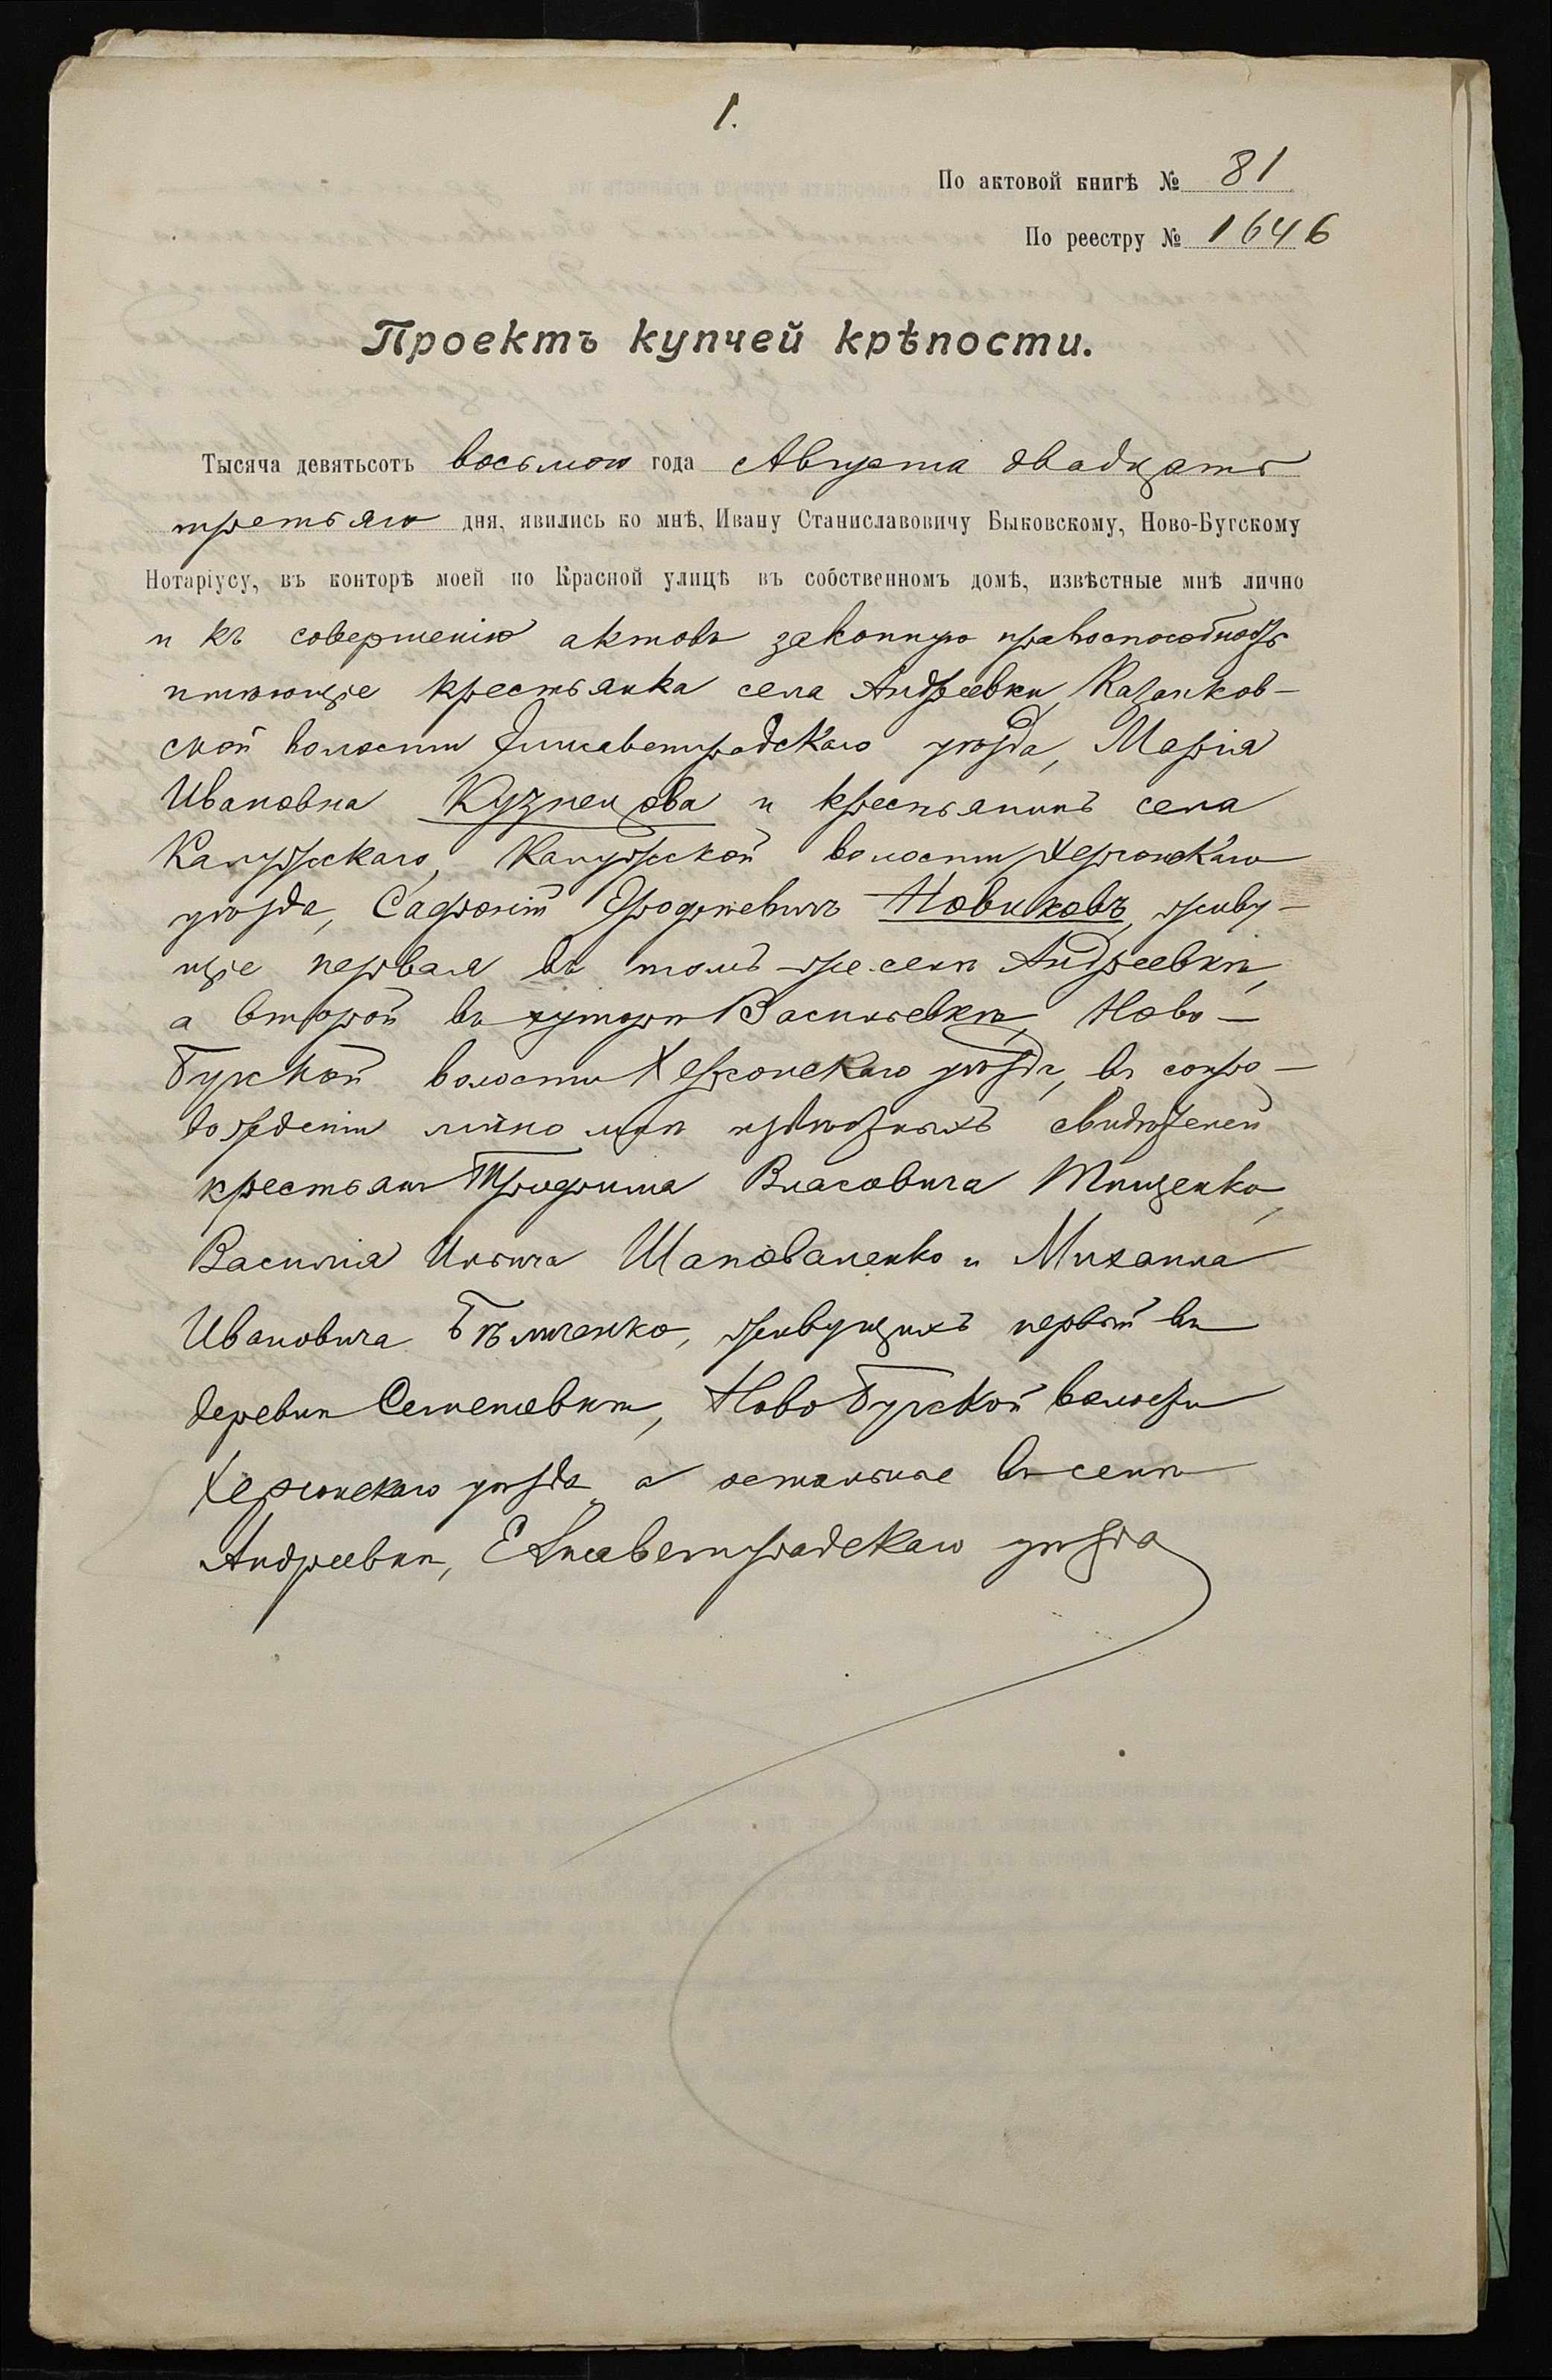 1.
По актовой книгѣ № 81
По реестру № 1646
Проектъ купчей крѣпости.
Тысяча девятьсотъ восьмого года Августа двадцать
третьяго дня, явились ко мнѣ, Ивану Станиславовичу Быковскому, Ново-Бугскому
Нотаріусу, въ конторѣ моей по Красной улицѣ въ собственномъ домѣ, извѣстные мнѣ лично
и къ совершенію актовъ законную правоспособность
имѣющіе крестьянка села Андреевки, Казанков-
ской волости Елисаветградскаго уѣзда, Марія
Ивановна Кузнецова и крестьянинъ села
Калужскаго, Калужской волости Херсонскаго
уѣзда, Сафроній Новиковъ, живу-
щіе первая въ томъ-же селѣ Андреевкѣ,
а второй въ хуторѣ Васильевкѣ, Ново-
Бугской волости Херсонскаго уѣзда, въ сопро-
вожденіи лично мнѣ извѣстныхъ свидѣтелей
крестьянъ Трофима Власовича Тищенко,
Василія Ильича Шаповаленко и Михаила
Ивановича Бѣличенко, живущихъ первый въ
деревнѣ Семеновкѣ, Ново Бугской волости
Херсонскаго уѣзда, а остальные въ селѣ
Андреевкѣ, Елисаветградскаго уѣзда